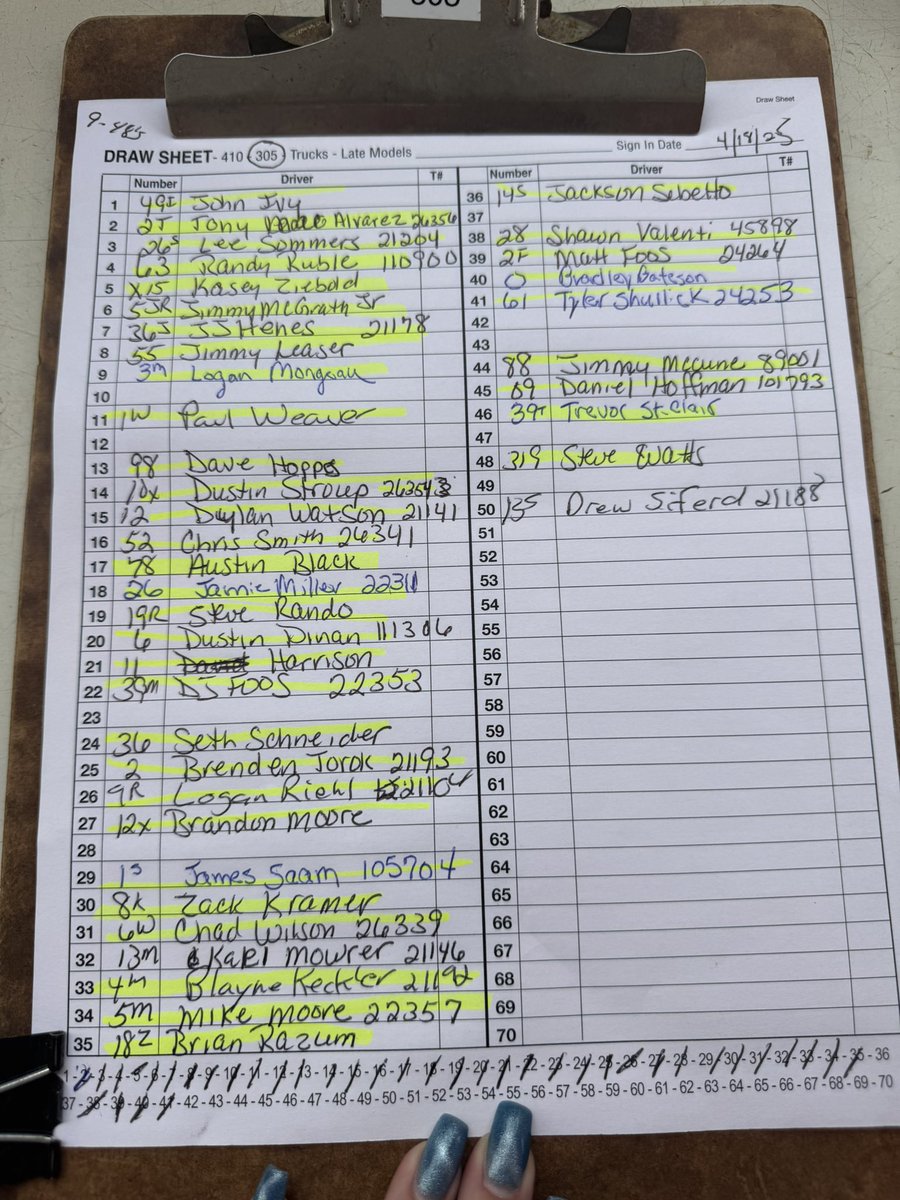 305
Draw Sheet
9-485
DRAW SHEET- 410 305 Trucks - Late Models
Sign In Date 4/18/25
Number Driver T#
1 49I John Ivy
2 2J Tony Alvarez 26356
3 26S Lee Sommers 21264
4 63 Randy Ruble 110900
5 X15 Kasey Ziebold
6 5JR Jimmy McGrath Jr
7 36J JJ Henes 21178
8 55 Jimmy Leaser
9 3m Logan Mongeau
10
11 1W Paul Weaver
12
13 98 Dave Hoppes
14 10x Dustin Stroup
15 12 Dylan Watson 21141
16 52 Chris Smith 26341
17 78 Austin Black
18 26 Jamie Miller 22311
19 19R Steve Rando
20 6 Dustin Dinan 111306
21 11 Harrison
22 39m DJ FOOS 22353
23
24 36 Seth Schneider
25 2 Brenden Torok 21193
26 9R Logan Riehl 21104
27 12x Brandon Moore
28
29 1s James Saam 105704
30 8K Zack Kramer
31 6W Chad Wilson 26339
32 13m Karl Mowrer 21146
33 4m Blayne Keckler 21192
34 5m Mike Moore 22357
35 18Z Brian Razum
Number Driver T#
36 14S Jackson Sebetto
37
38 28 Shawn Valenti 45898
39 2F Matt Foos 24264
40 0 Bradley Bateson
41 61 Tyler Shullick 24253
42
43
44 88 Jimmy McCune 89001
45 69 Daniel Hoffman 101793
46 39T Trevor St. Clair
47
48 319 Steve Watts
49
50 13S Drew Siferd 21188
51
52
53
54
55
56
57
58
59
60
61
62
63
64
65
66
67
68
69
70
1 - 2 - 3 - 4 - 5 - 6 - 7 - 8 - 9 - 10 - 11 - 12 - 13 - 14 - 15 - 16 - 17 - 18 - 19 - 20 - 21 - 22 - 23 - 24 - 25 - 26 - 27 - 28 - 29 - 30 - 31 - 32 - 33 - 34 - 35 - 36
37 - 38 - 39 - 40 - 41 - 42 - 43 - 44 - 45 - 46 - 47 - 48 - 49 - 50 - 51 - 52 - 53 - 54 - 55 - 56 - 57 - 58 - 59 - 60 - 61 - 62 - 63 - 64 - 65 - 66 - 67 - 68 - 69 - 70